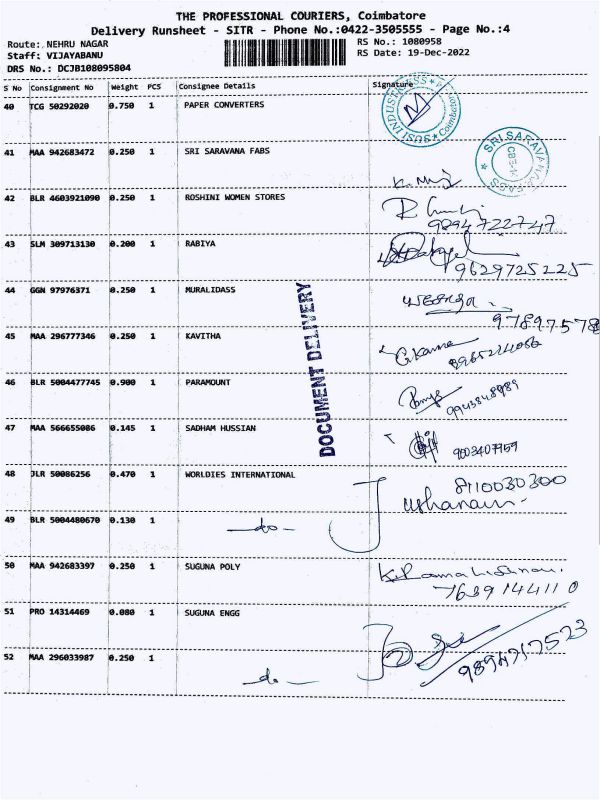 THE PROFESSIONAL COURIERS, Coimbatore
Delivery Runsheet - SITR - Phone No.:0422-3505555 - Page No.:4
Route: NEHRU NAGAR
RS No.: 1080958
Staff: VIJAYABANU
RS Date: 19-Dec-2022
DRS No.: DCJB108095804
S No Consignment No Weight PCS Consignee Details Signature
40 TCG 50292020 0.750 1 PAPER CONVERTERS
41 MAA 942683472 0.250 1 SRI SARAVANA FABS
42 BLR 4603921090 0.250 1 ROSHINI WOMEN STORES
9894722747
43 SLM 309713130 0.200 1 RABIYA
9629725225
44 GGN 97976371 0.250 1 MURALIDASS
97897578
45 MAA 296777346 0.250 1 KAVITHA
46 BLR 5004477745 0.900 1 PARAMOUNT
9943848989
47 MAA 566655086 0.145 1 SADHAM HUSSIAN
9003407959
48 JLR 50086256 0.470 1 WORLDIES INTERNATIONAL
8110030300
49 BLR 5004480670 0.130 1 -do-
50 MAA 942683397 0.250 1 SUGUNA POLY
7689144110
51 PRO 14314469 0.080 1 SUGUNA ENGG
9894717523
52 MAA 296033987 0.250 1 -do-
DOCUMENT DELIVERY